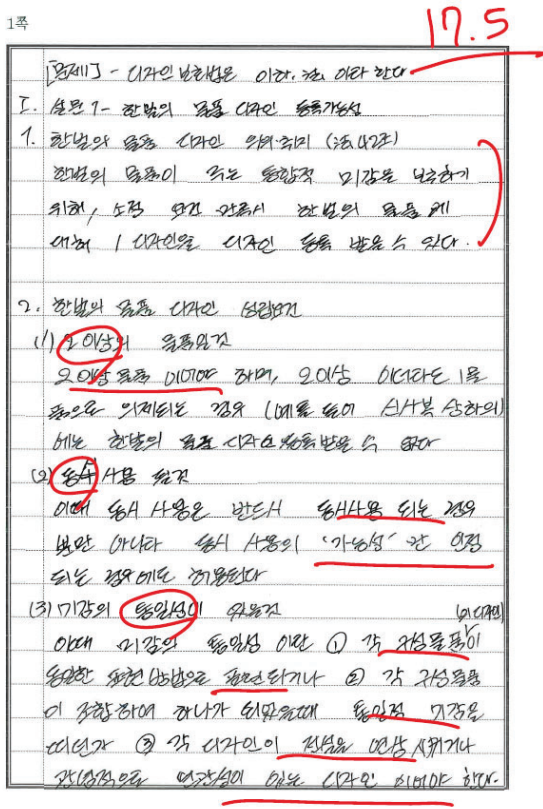 1쪽
17.5
[문제1] - 디자인 보호법은 이하, 법 이라 한다
I. 설문 1 - 한벌의 물품 디자인 등록가능성
1. 한벌의 물품 디자인 의의·취지 (법 42조)
한벌의 물품이 주는 통합적 미감을 보호하기
위해, 소정 요건 만족시 한벌의 물품에
대해 1 디자인으로 디자인 등록 받을 수 있다.
2. 한벌의 물품 디자인 성립요건
(1) 2 이상의 물품일것
2이상 물품 이어야 하며, 2이상 이더라도 1물
품으로 의제되는 경우 (예를 들어 신사복 상하의)
에는 한벌의 물품 디자인 등록받을 수 없다
(2) 동시 사용 될것
이때 동시 사용은 반드시 동시사용 되는 경우
뿐만 아니라 동시 사용의 '가능성'만 인정
되는 경우에도 허용된다
(3) 미감의 통일성이 있을것
이때 미감의 통일성 이란 ① 각 구성물품의 디자인이
동일한 표현방법으로 표현되거나 ② 각 구성물품
이 조합하여 하나가 되었을때 통일적 미감을
띠던가 ③ 각 디자인이 전설을 연상 시키거나
관념적으로 연관성이 있는 디자인 이어야 한다.